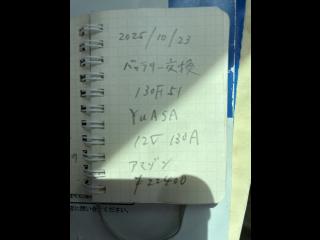 2025/10/23
バッテリー交換
130F51
YUASA
12V 130A
アマゾン
¥22400